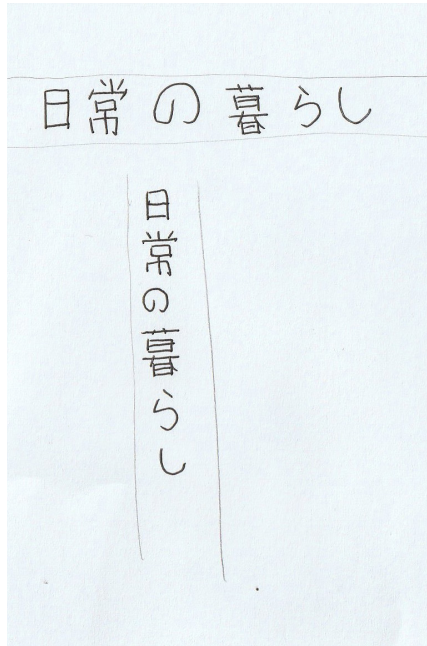 日常の暮らし
日常の暮らし